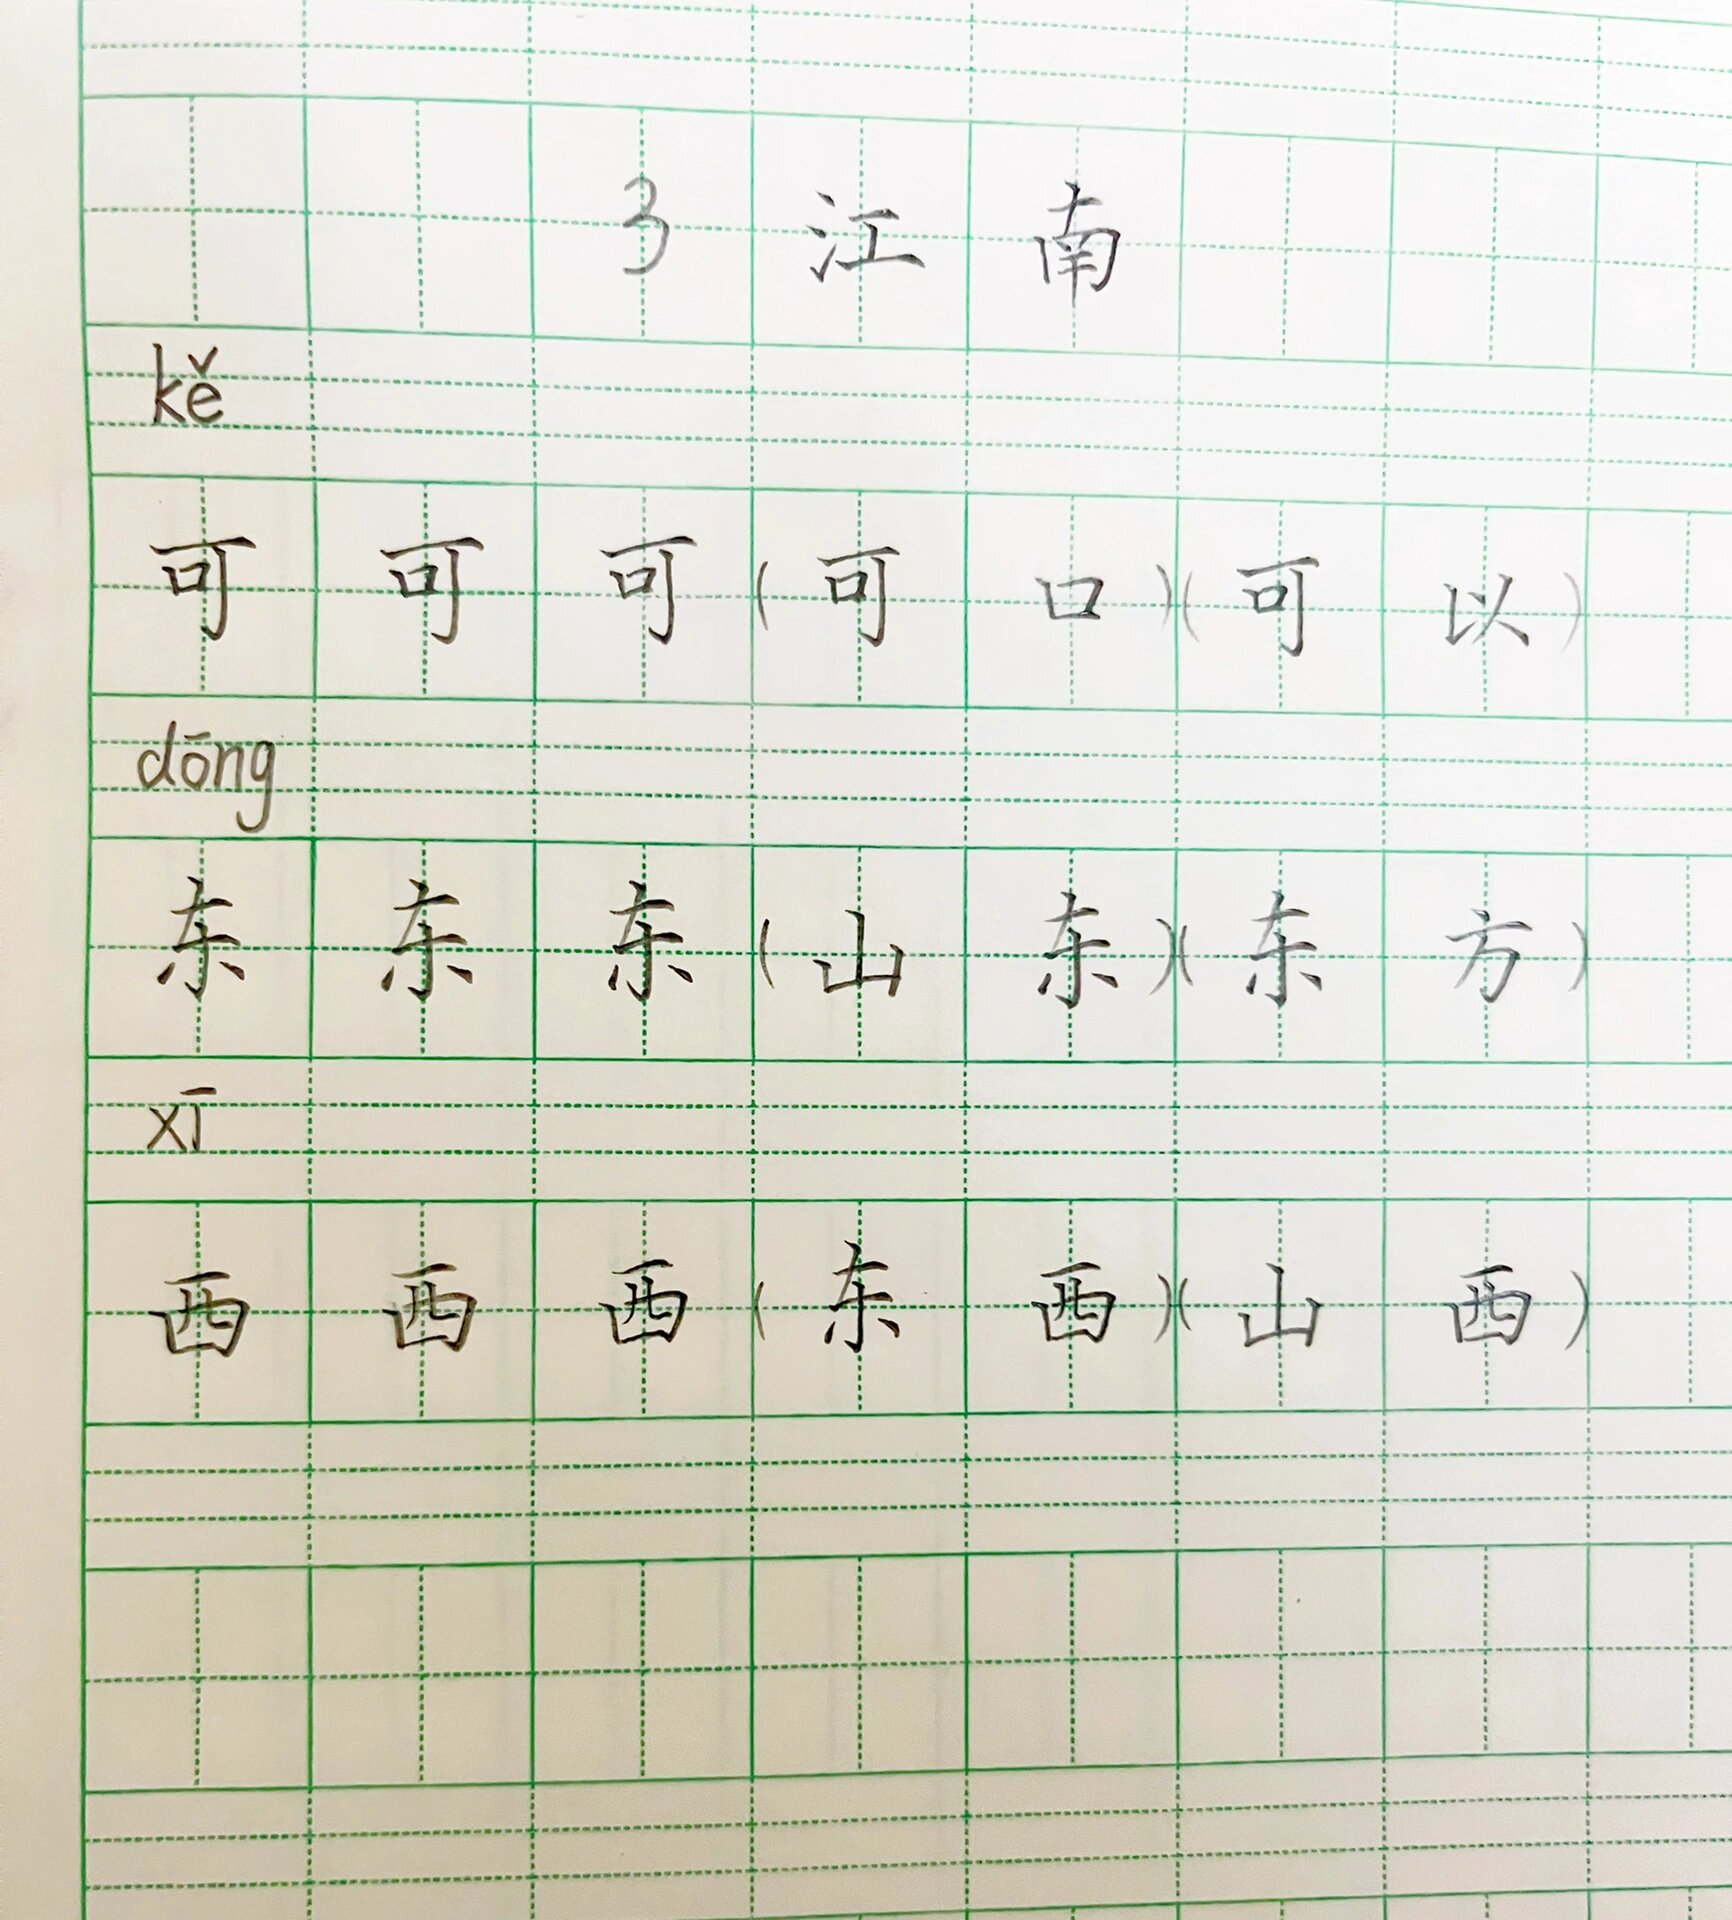 3 江南
kě
可 可 可 (可口)(可以)
dōng
东 东 东 (山东)(东方)
xī
西 西 西 (东西)(山西)